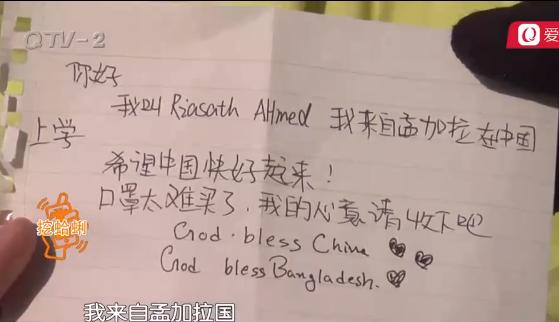 QTV-2
爱
你好
我叫 Riasath AHmed 我来自孟加拉在中国
上学
希望中国快好起来!
口罩太难买了,我的心意请收下吧
God·bless China
God bless Bangladesh.
挖蛤蜊
我来自孟加拉国